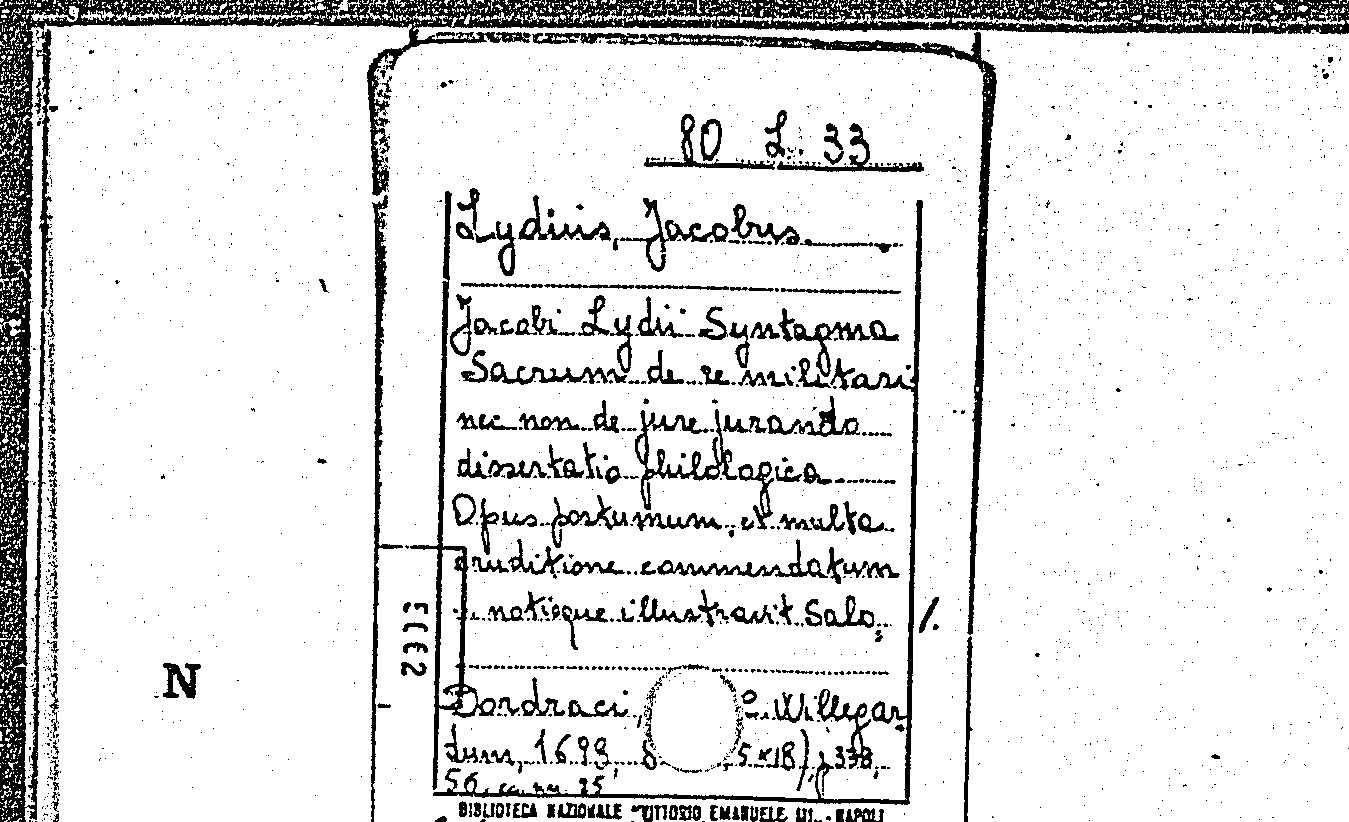 80 L. 33
Lydius, Jacobus.
Jacobi Lydii Syntagma
Sacrum de re militari
nec non de jure jurando
dissertatio philologica
Opus postumum, et multa
eruditione commendatum
... notisque illustravit Salo,
1.
N
Dordraci, C. Willegar,
dum, 1698, 8 ,5x18), p 338,
56, ca. nn. 25
BIBLIOTECA NAZIONALE "VITTORIO EMANUELE III" - NAPOLI